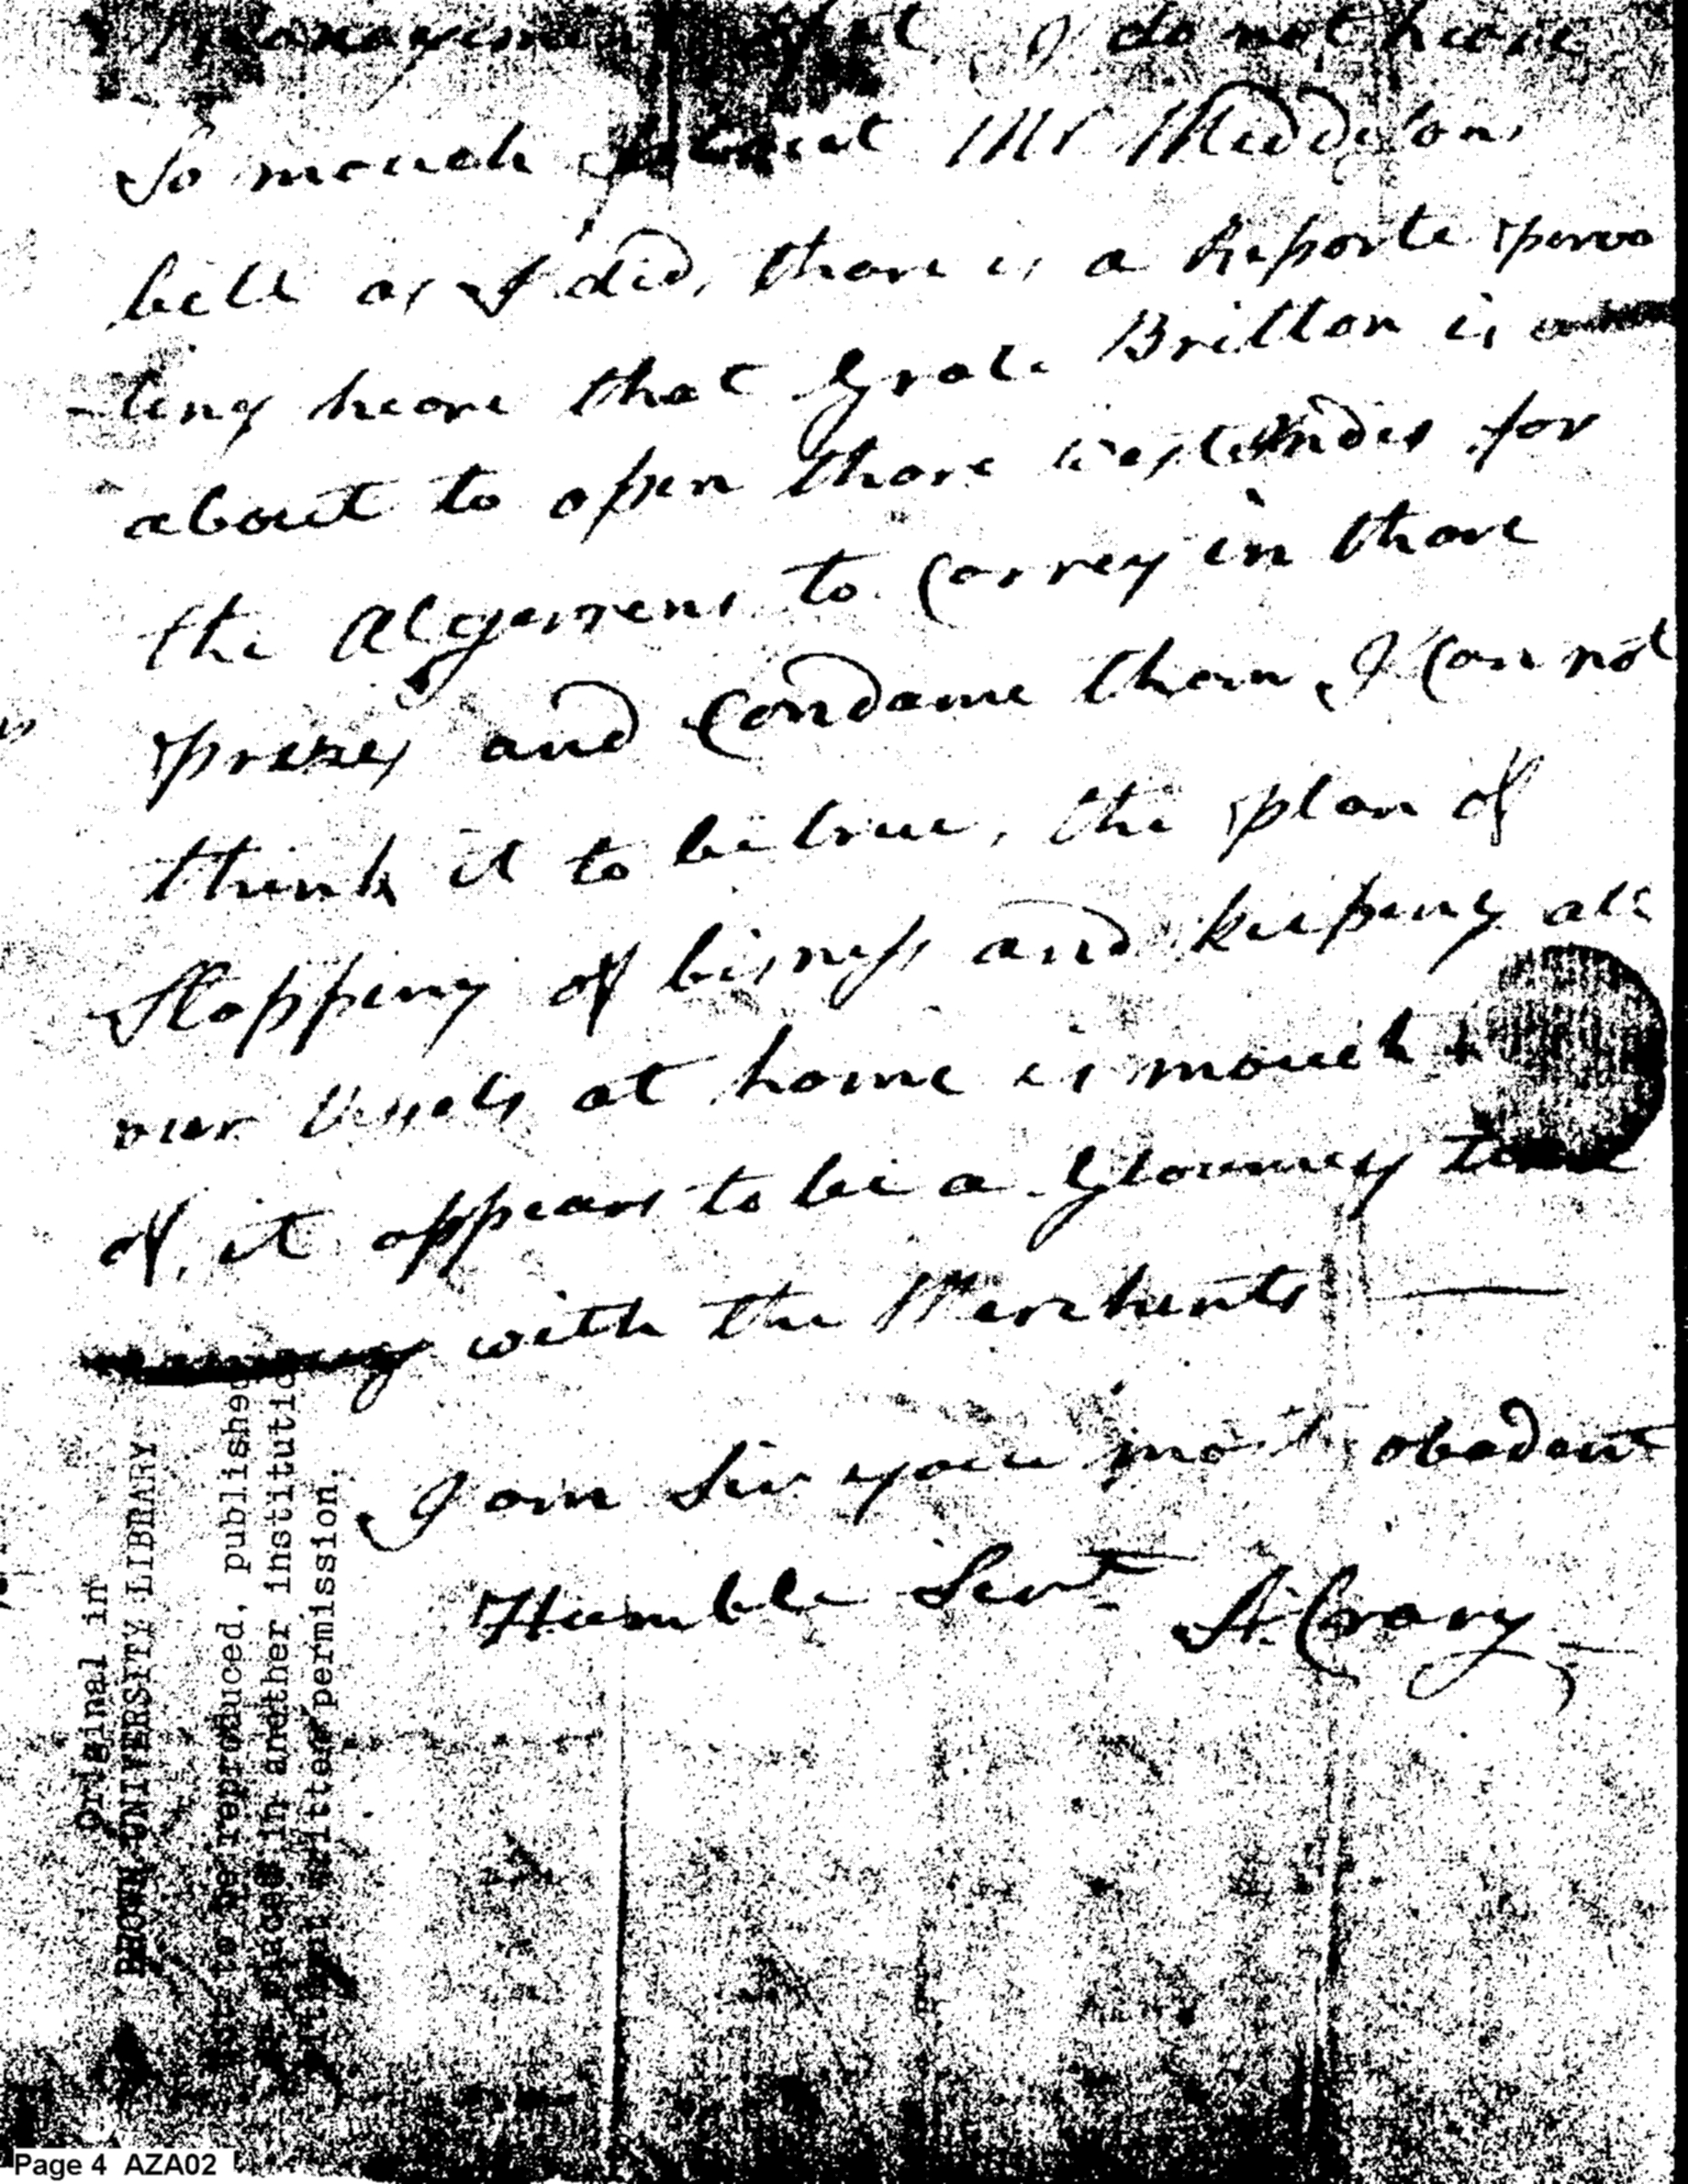 that I do not heare
So mouch about Mr Meddelons
bill as I did, thare is a Reporte perva
-ling heare that Grate Britton is
about to open thare westindes for
the Algerrens to Carrey in thare
prizes and Condame them, I Can not
think it to be true, the plan of
Stopping of bisness and keeping all
our Vessels at home is mouch
of, it appears to be a Gloumey time
with the Merchents —
I am Sir your most obedant
Humble Servt A. Crary
Original in
BROWN UNIVERSITY LIBRARY
Not to be reproduced, published
or placed in another institution
without written permission.
Page 4 AZA02